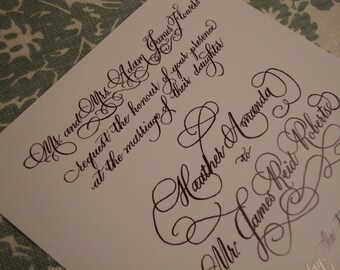 Mr. and Mrs. Adam James Flowers
request the honour of your presence
at the marriage of their daughter
Heather Amanda
to
Mr. James Reid Roberts
the